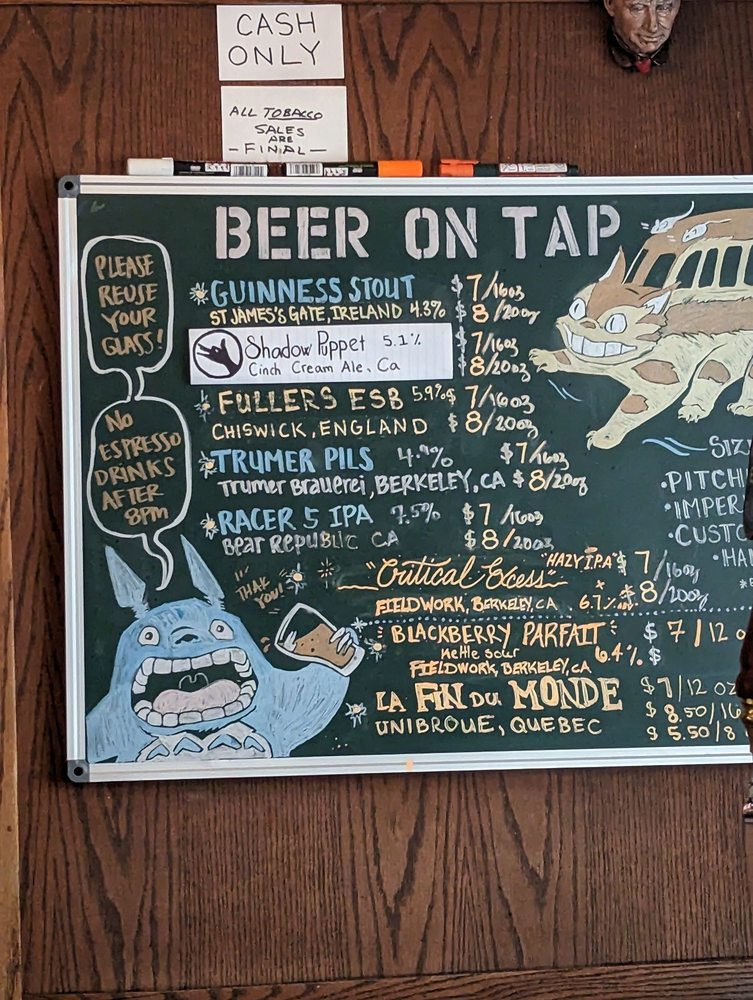 CASH
ONLY
ALL TOBACCO
SALES
ARE
- FINAL -
BEER ON TAP
PLEASE
REUSE
YOUR
GLASS!
NO
ESPRESSO
DRINKS
AFTER
8PM
"THAK
YOU!"
GUINNESS STOUT $7/16oz
ST JAMES'S GATE, IRELAND 4.3% $8/20oz
Shadow Puppet 5.1% $7/16oz
Cinch Cream Ale, Ca $8/20oz
FULLERS ESB 5.9% $7/16oz
CHISWICK, ENGLAND $8/20oz
TRUMER PILS 4.9% $7/16oz
Trumer Brauerei, BERKELEY, CA $8/20oz
RACER 5 IPA 7.5% $7/16oz
Bear Republic CA $8/20oz
"Critical Excess" "HAZY IPA" $7/16oz
FIELDWORK, BERKELEY, CA 6.7% ABV $8/20oz
BLACKBERRY PARFAIT $7/12 O
nettle sour 6.4% $
FIELDWORK, BERKELEY, CA
LA FIN DU MONDE $7/12 OZ
UNIBROUE, QUEBEC $8.50/16
$5.50/8
SIZ
•PITCH
•IMPER
•CUSTO
•HA